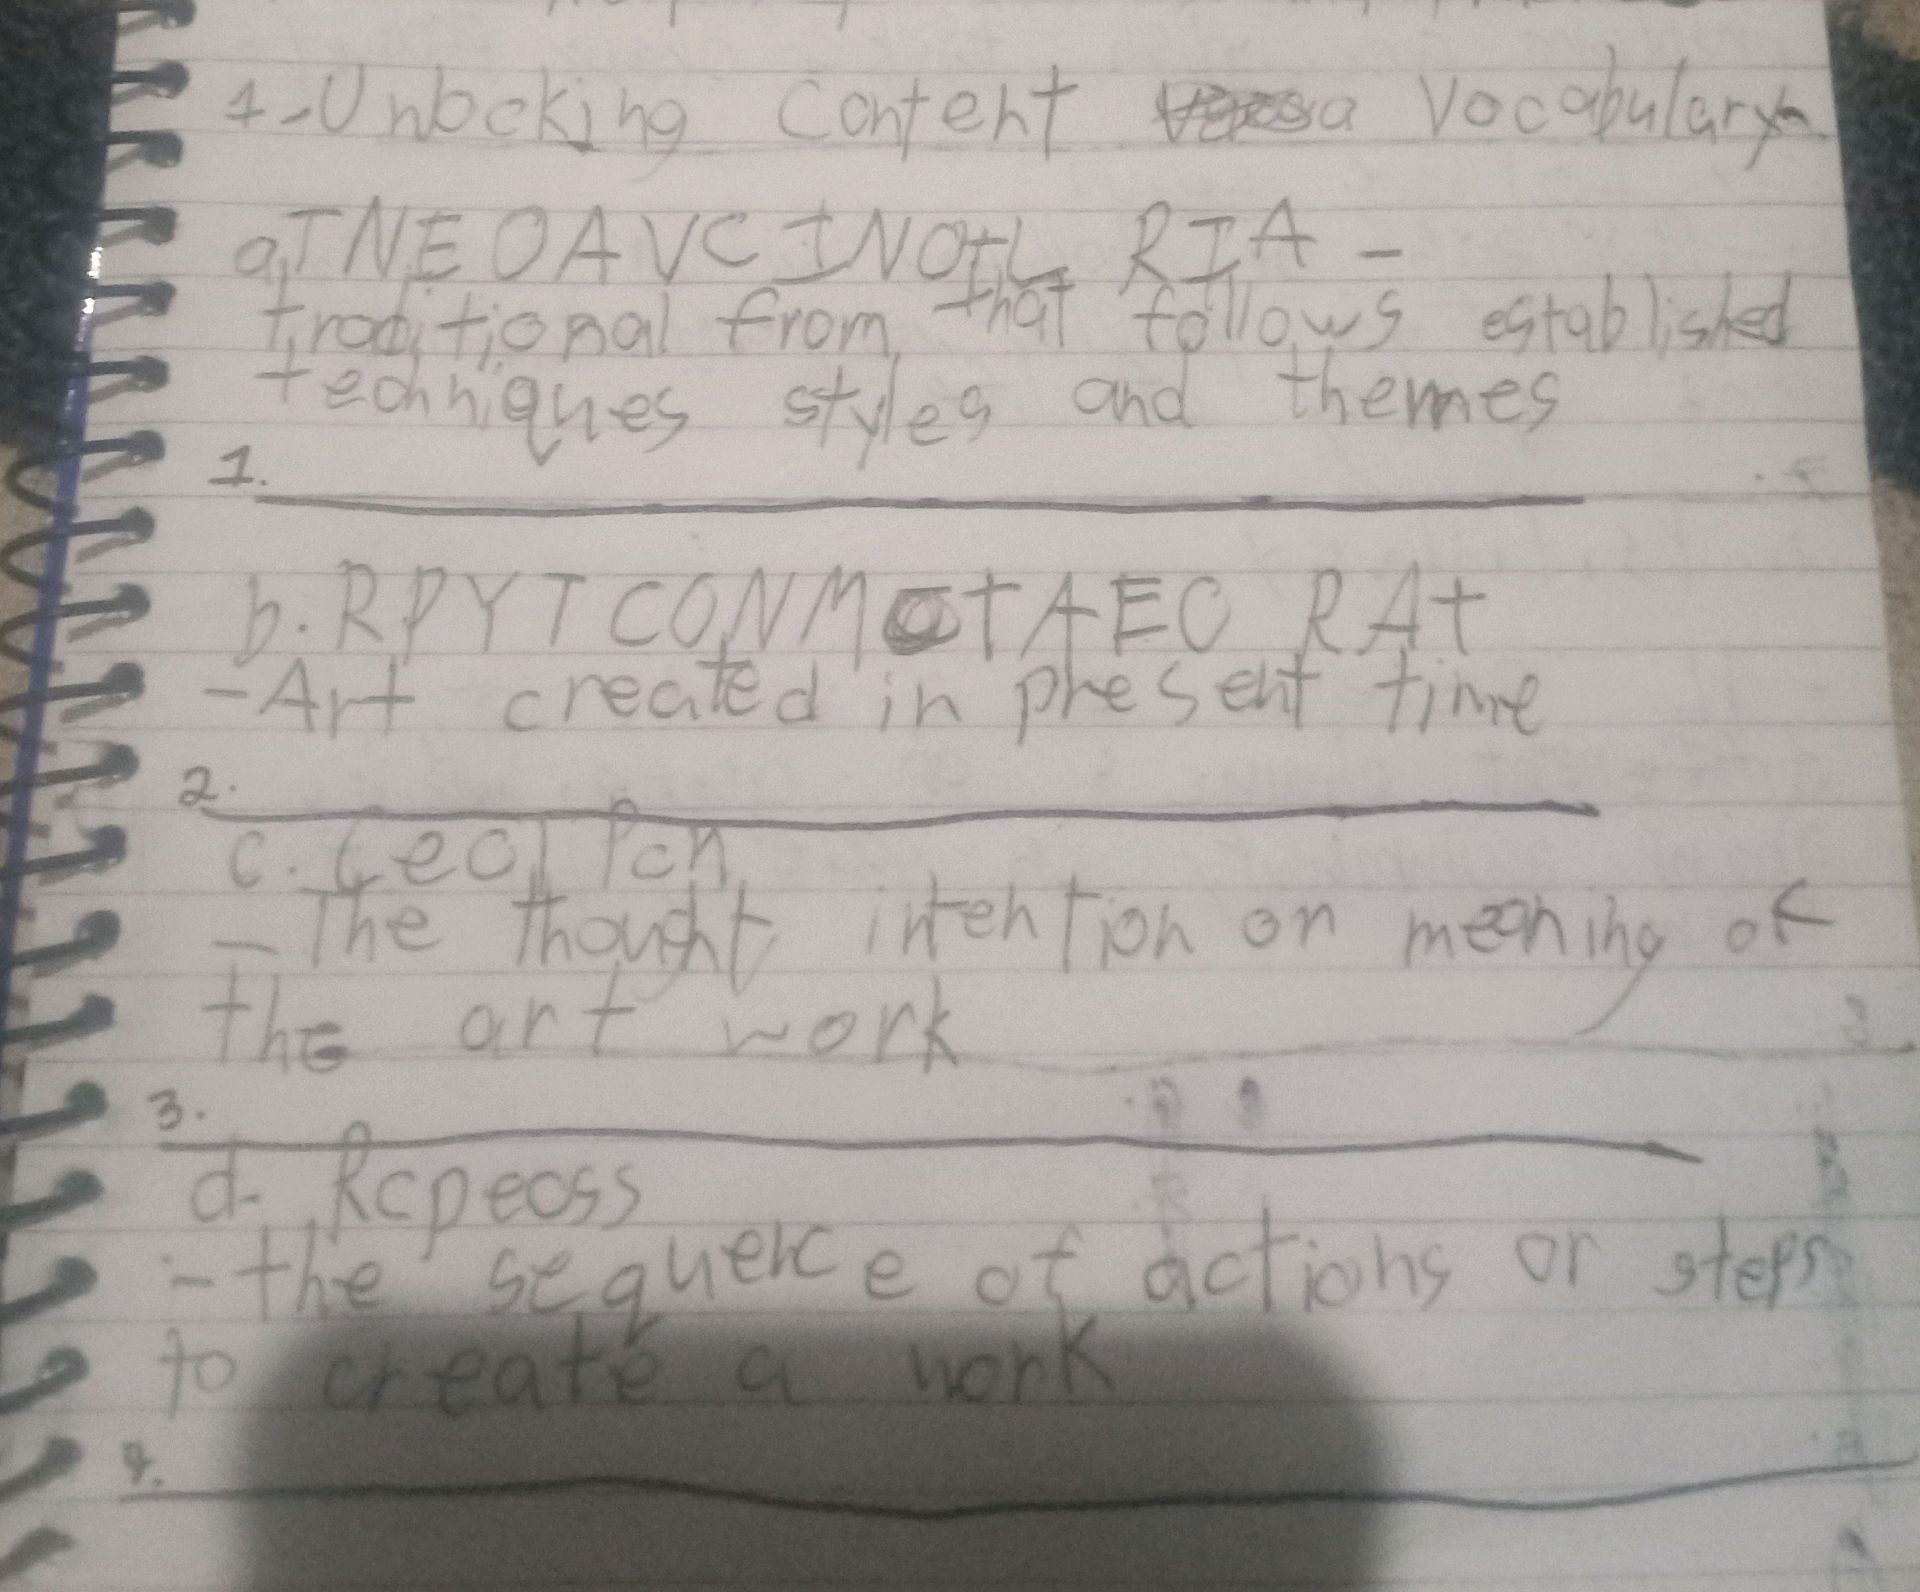 1-Unlocking Content Vocabulary
a. TNEOAVCINOtL RIA -
traditional from that follows established
techniques styles and themes
1.
b. RPYTCONMOTAEO RAt
-Art created in present time
2.
c.
- The thought intention on meaning of
the art work
3.
d- Rcpeoss
- the sequence of actions or steps
to create a work
4.